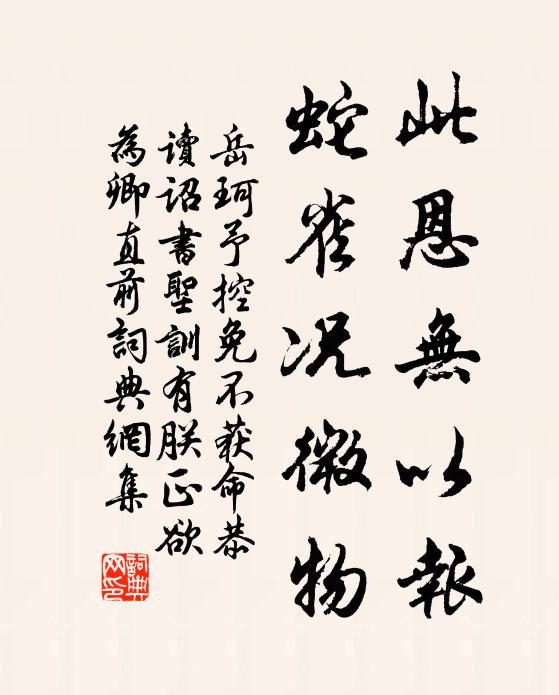 此恩無以報
蛇雀况微物
岳珂予控免不获命恭
讀詔書聖訓有朕正欲
為卿直前詞典網集
詞典網印